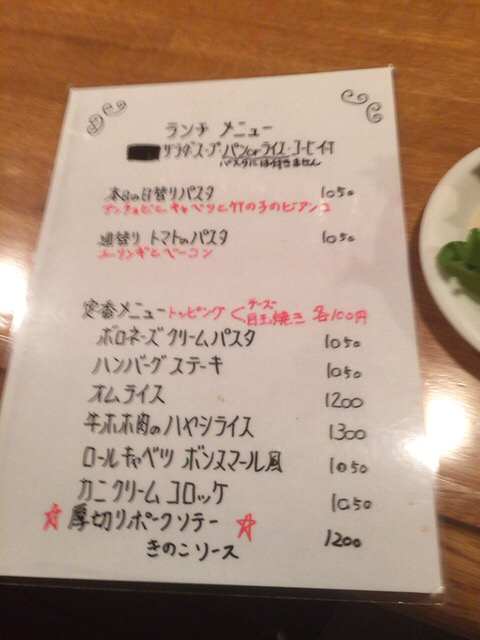 ランチ メニュー
サラダ・スープ・パンorライス・コーヒー付
パスタには付きません
本日の日替りパスタ 1050
アンチョビとキャベツと竹の子のビアンコ
週替り トマトのパスタ 1050
エーリンギとベーコン
定番メニュー トッピング < チーズ 目玉焼き 各100円
ボロネーズクリームパスタ 1050
ハンバーグステーキ 1050
オムライス 1200
牛ホホ肉のハヤシライス 1300
ロールキャベツ ボンヌマール風 1050
カニクリームコロッケ 1050
☆厚切りポークソテー☆
きのこソース 1200